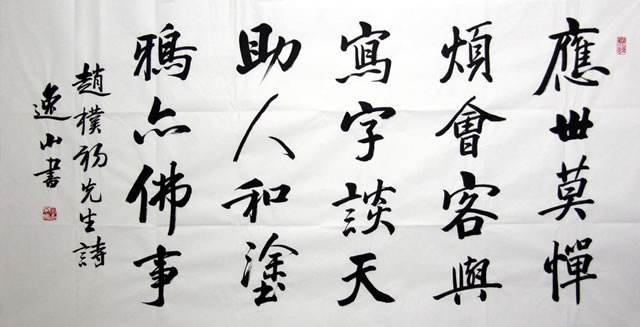 應世莫憚
煩會客與
寫字談天
助人和塗
鴉亦佛事
趙樸初先生詩
逸山書